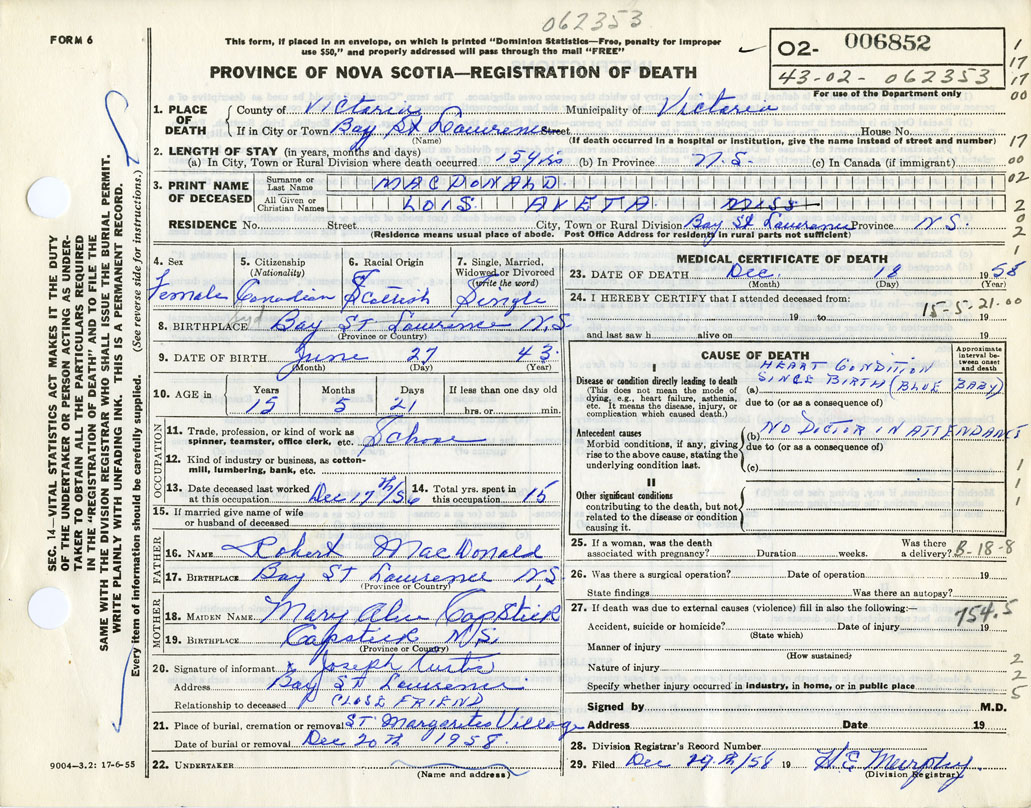 062353
FORM 6
This form, if placed in an envelope, on which is printed "Dominion Statistics—Free, penalty for improper
use $50," and properly addressed will pass through the mail "FREE"
02- 006852
43-02-062353
For use of the Department only
PROVINCE OF NOVA SCOTIA—REGISTRATION OF DEATH
1. PLACE OF DEATH County of Victoria Municipality of Victoria
If in City or Town Bay St Lawrence Street House No.
(Name) (If death occurred in a hospital or institution, give the name instead of street and number)
2. LENGTH OF STAY (in years, months and days)
(a) In City, Town or Rural Division where death occurred 15 yrs (b) In Province N.S. (c) In Canada (if immigrant)
3. PRINT NAME OF DECEASED Surname or Last Name MACDONALD
All Given or Christian Names LOIS AVETA MISS
RESIDENCE No. Street City, Town or Rural Division Bay St Lawrence Province N.S.
(Residence means usual place of abode. Post Office Address for residents in rural parts not sufficient)
4. Sex 5. Citizenship (Nationality) 6. Racial Origin 7. Single, Married, Widowed or Divorced (write the word)
Female Canadian Scottish Single
8. BIRTHPLACE Bay St Lawrence N,S
(Province or Country)
9. DATE OF BIRTH June 27 43
(Month) (Day) (Year)
10. AGE in Years Months Days If less than one day old
15 5 21 hrs. or min.
OCCUPATION
11. Trade, profession, or kind of work as spinner, teamster, office clerk, etc.
12. Kind of industry or business, as cotton-mill, lumbering, bank, etc.
13. Date deceased last worked at this occupation Dec 17th/56 14. Total yrs. spent in this occupation 15
15. If married give name of wife or husband of deceased
FATHER
16. NAME Robert MacDonald
17. BIRTHPLACE Bay St Lawrence N,S,
(Province or Country)
MOTHER
18. MAIDEN NAME Mary Alice CapStick
19. BIRTHPLACE Capstick N,S,
(Province or Country)
20. Signature of informant x Joseph Curtis
Address Bay St Lawrence
Relationship to deceased CLOSE FRIEND
21. Place of burial, cremation or removal ST Margarites Village
Date of burial or removal Dec 20th 1958.
22. UNDERTAKER
(Name and address)
9004—3.2: 17-6-55
MEDICAL CERTIFICATE OF DEATH
23. DATE OF DEATH Dec 18 1958
(Month) (Day) (Year)
24. I HEREBY CERTIFY that I attended deceased from:
15-5-21.00
19 to 19
and last saw h alive on 19
CAUSE OF DEATH
Approximate interval between onset and death
I
Disease or condition directly leading to death
(This does not mean the mode of dying, e.g., heart failure, asthenia, etc. It means the disease, injury, or complication which caused death.)
(a) HEART CONDITION
SINCE BIRTH (BLUE BABY)
due to (or as a consequence of)
Antecedent causes
Morbid conditions, if any, giving rise to the above cause, stating the underlying condition last.
(b) NO DOCTOR IN ATTENDANTS
due to (or as a consequence of)
(c)
II
Other significant conditions
contributing to the death, but not related to the disease or condition causing it.
25. If a woman, was the death associated with pregnancy? Duration weeks. Was there a delivery? B-18-8
26. Was there a surgical operation? Date of operation 19
State findings Was there an autopsy?
27. If death was due to external causes (violence) fill in also the following:— 754.5
Accident, suicide or homicide? Date of injury 19
(State which)
Manner of injury
(How sustained)
Nature of injury
Specify whether injury occurred in industry, in home, or in public place
Signed by M.D.
Address Date 19
28. Division Registrar's Record Number
29. Filed Dec 29th/58 19 H E Murphy
(Division Registrar)
SEC. 14—VITAL STATISTICS ACT MAKES IT THE DUTY
OF THE UNDERTAKER OR PERSON ACTING AS UNDER-
TAKER TO OBTAIN ALL THE PARTICULARS REQUIRED
IN THE "REGISTRATION OF DEATH" AND TO FILE THE
SAME WITH THE DIVISION REGISTRAR WHO SHALL ISSUE THE BURIAL PERMIT.
WRITE PLAINLY WITH UNFADING INK. THIS IS A PERMANENT RECORD.
Every item of information should be carefully supplied. (See reverse side for instructions.)
1
17
17
00
17
00
02
2
0
2
1
1
1
1
2
2
5